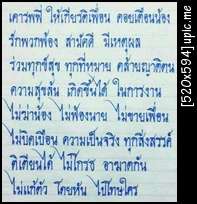 เคารพพี่ ให้เกียรติเพื่อน คอยเตือนน้อง
รักพวกพ้อง สามัคคี มีเหตุผล
ร่วมทุกข์สุข ทุกที่หมาย คล้ายญาติตน
ความสุขล้น เกิดขึ้นได้ ในการงาน
ไม่ฆ่าน้อง ไม่ฟ้องนาย ไม่ขายเพื่อน
ไม่บิดเบือน ความเป็นจริง ทุกสิ่งสรรค์
ติเตียนได้ ไม่โกรธ อาฆาตกัน
ไม่แก้ตัว โดยหัน ไปโทษใคร
[520x594] upic.me